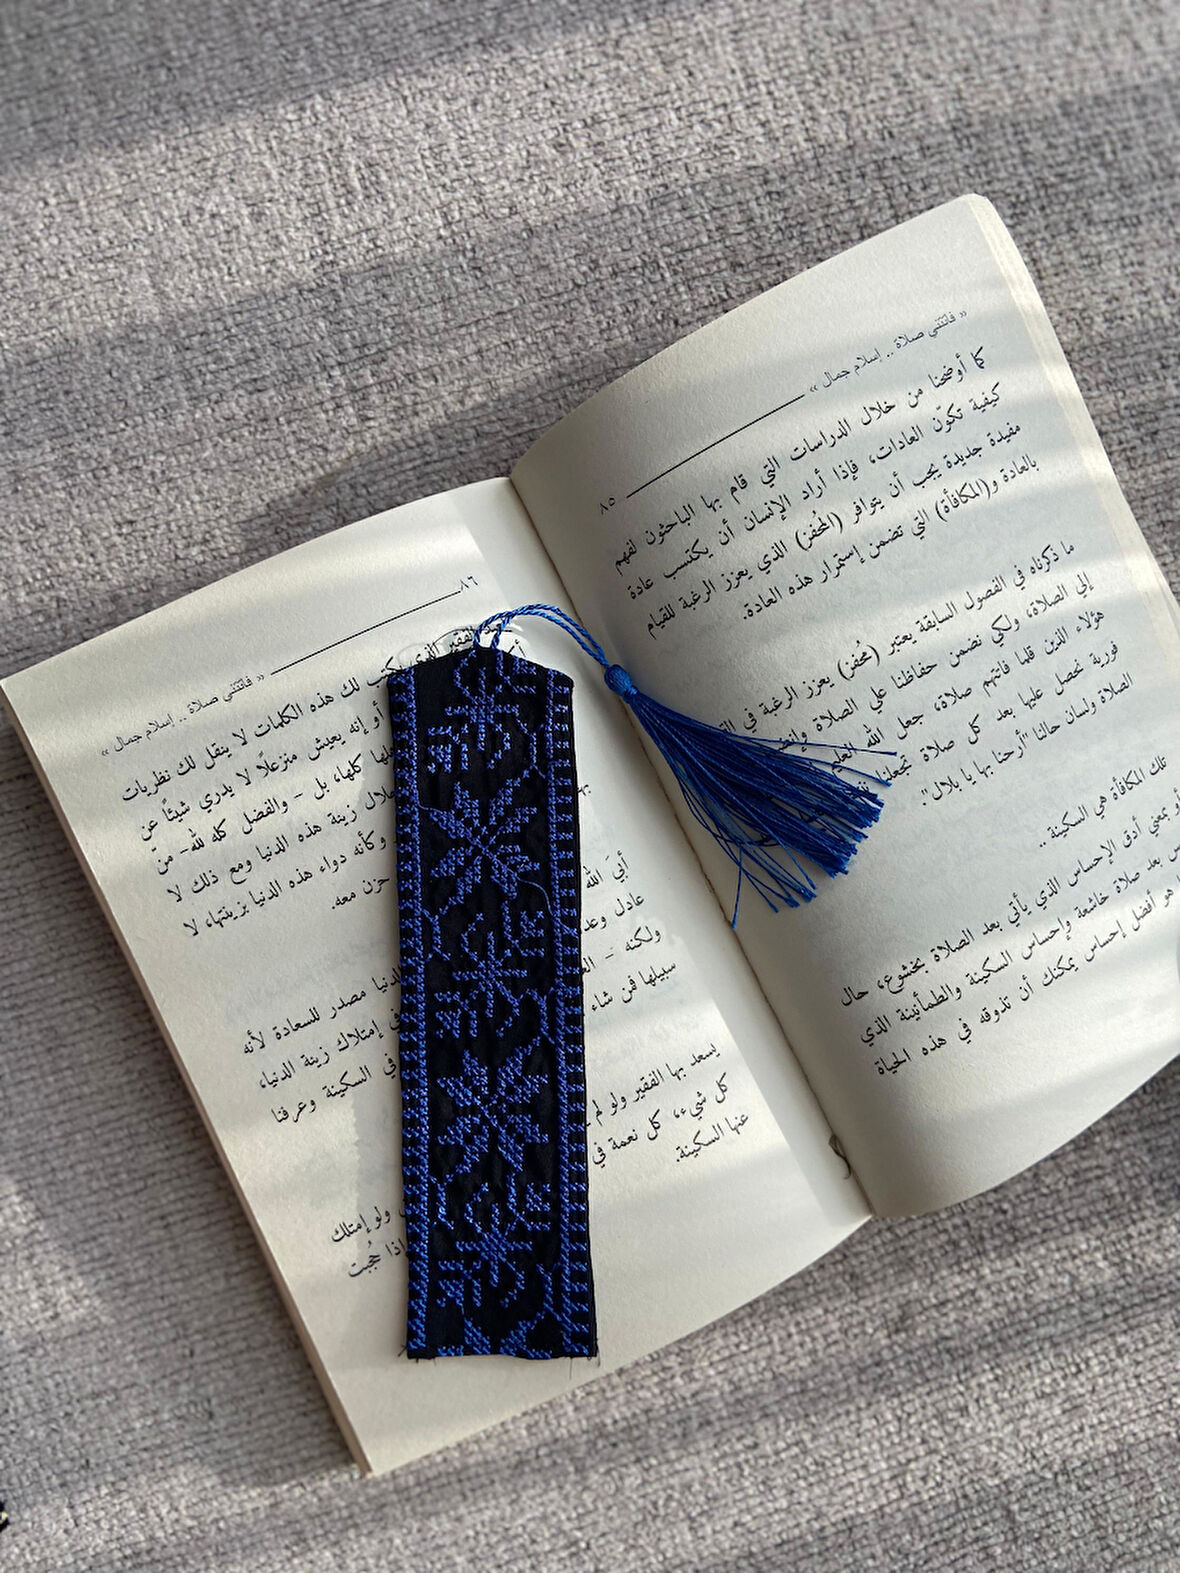 « فاتتني صلاة .. إسلام جمال »
٨٥
كما أوضحنا من خلال الدراسات التي قام بها الباحثون لفهم
كيفية تكوّن العادات، فإذا أراد الإنسان أن يكتسب عادة
مفيدة جديدة يجب أن يتوافر (المُحفز) الذي يعزز الرغبة للقيام
بالعادة و(المكافأة) التي تضمن إستمرار هذه العادة.
ما ذكرناه في الفصول السابقة يعتبر (مُحفز) يعزز الرغبة في
إلي الصلاة، ولكي نضمن حفاظنا علي الصلاة
هؤلاء الذين قلما فاتتهم صلاة، جعل الله العليم
فورية نحصل عليها بعد كل صلاة تجعلنا
الصلاة ولسان حالنا "أرحنا بها يا بلال".
تلك المكافأة هي السكينة..
أو بمعني أدق الإحساس الذي يأتي بعد الصلاة بخشوع، حال
بعد صلاة خاشعة وإحساس السكينة والطمأنينة الذي
هو أفضل إحساس يمكنك أن تذوقه في هذه الحياة
٨٦
« فاتتني صلاة .. إسلام جمال »
الفقير الذي يكتب لك هذه الكلمات لا ينقل لك نظريات
أو إنه يعيش منزعلاً لا يدري شيئًا عن
كلها، بل - والفضل كله لله - منّ
خلال زينة هذه الدنيا ومع ذلك لا
وكأنه دواء هذه الدنيا بزينتها، لا
حزن معه.
أبيَ الله
الدنيا مصدر للسعادة لأنه
عادل
في إمتلاك زينة الدنيا،
ولكنه -
في السكينة وعرفنا
سبيلها فمن شاء
يسعد بها الفقير ولو لم
ولو إمتلك
كل شيء، كل نعمة في
إذا حُجبت
عنها السكينة.